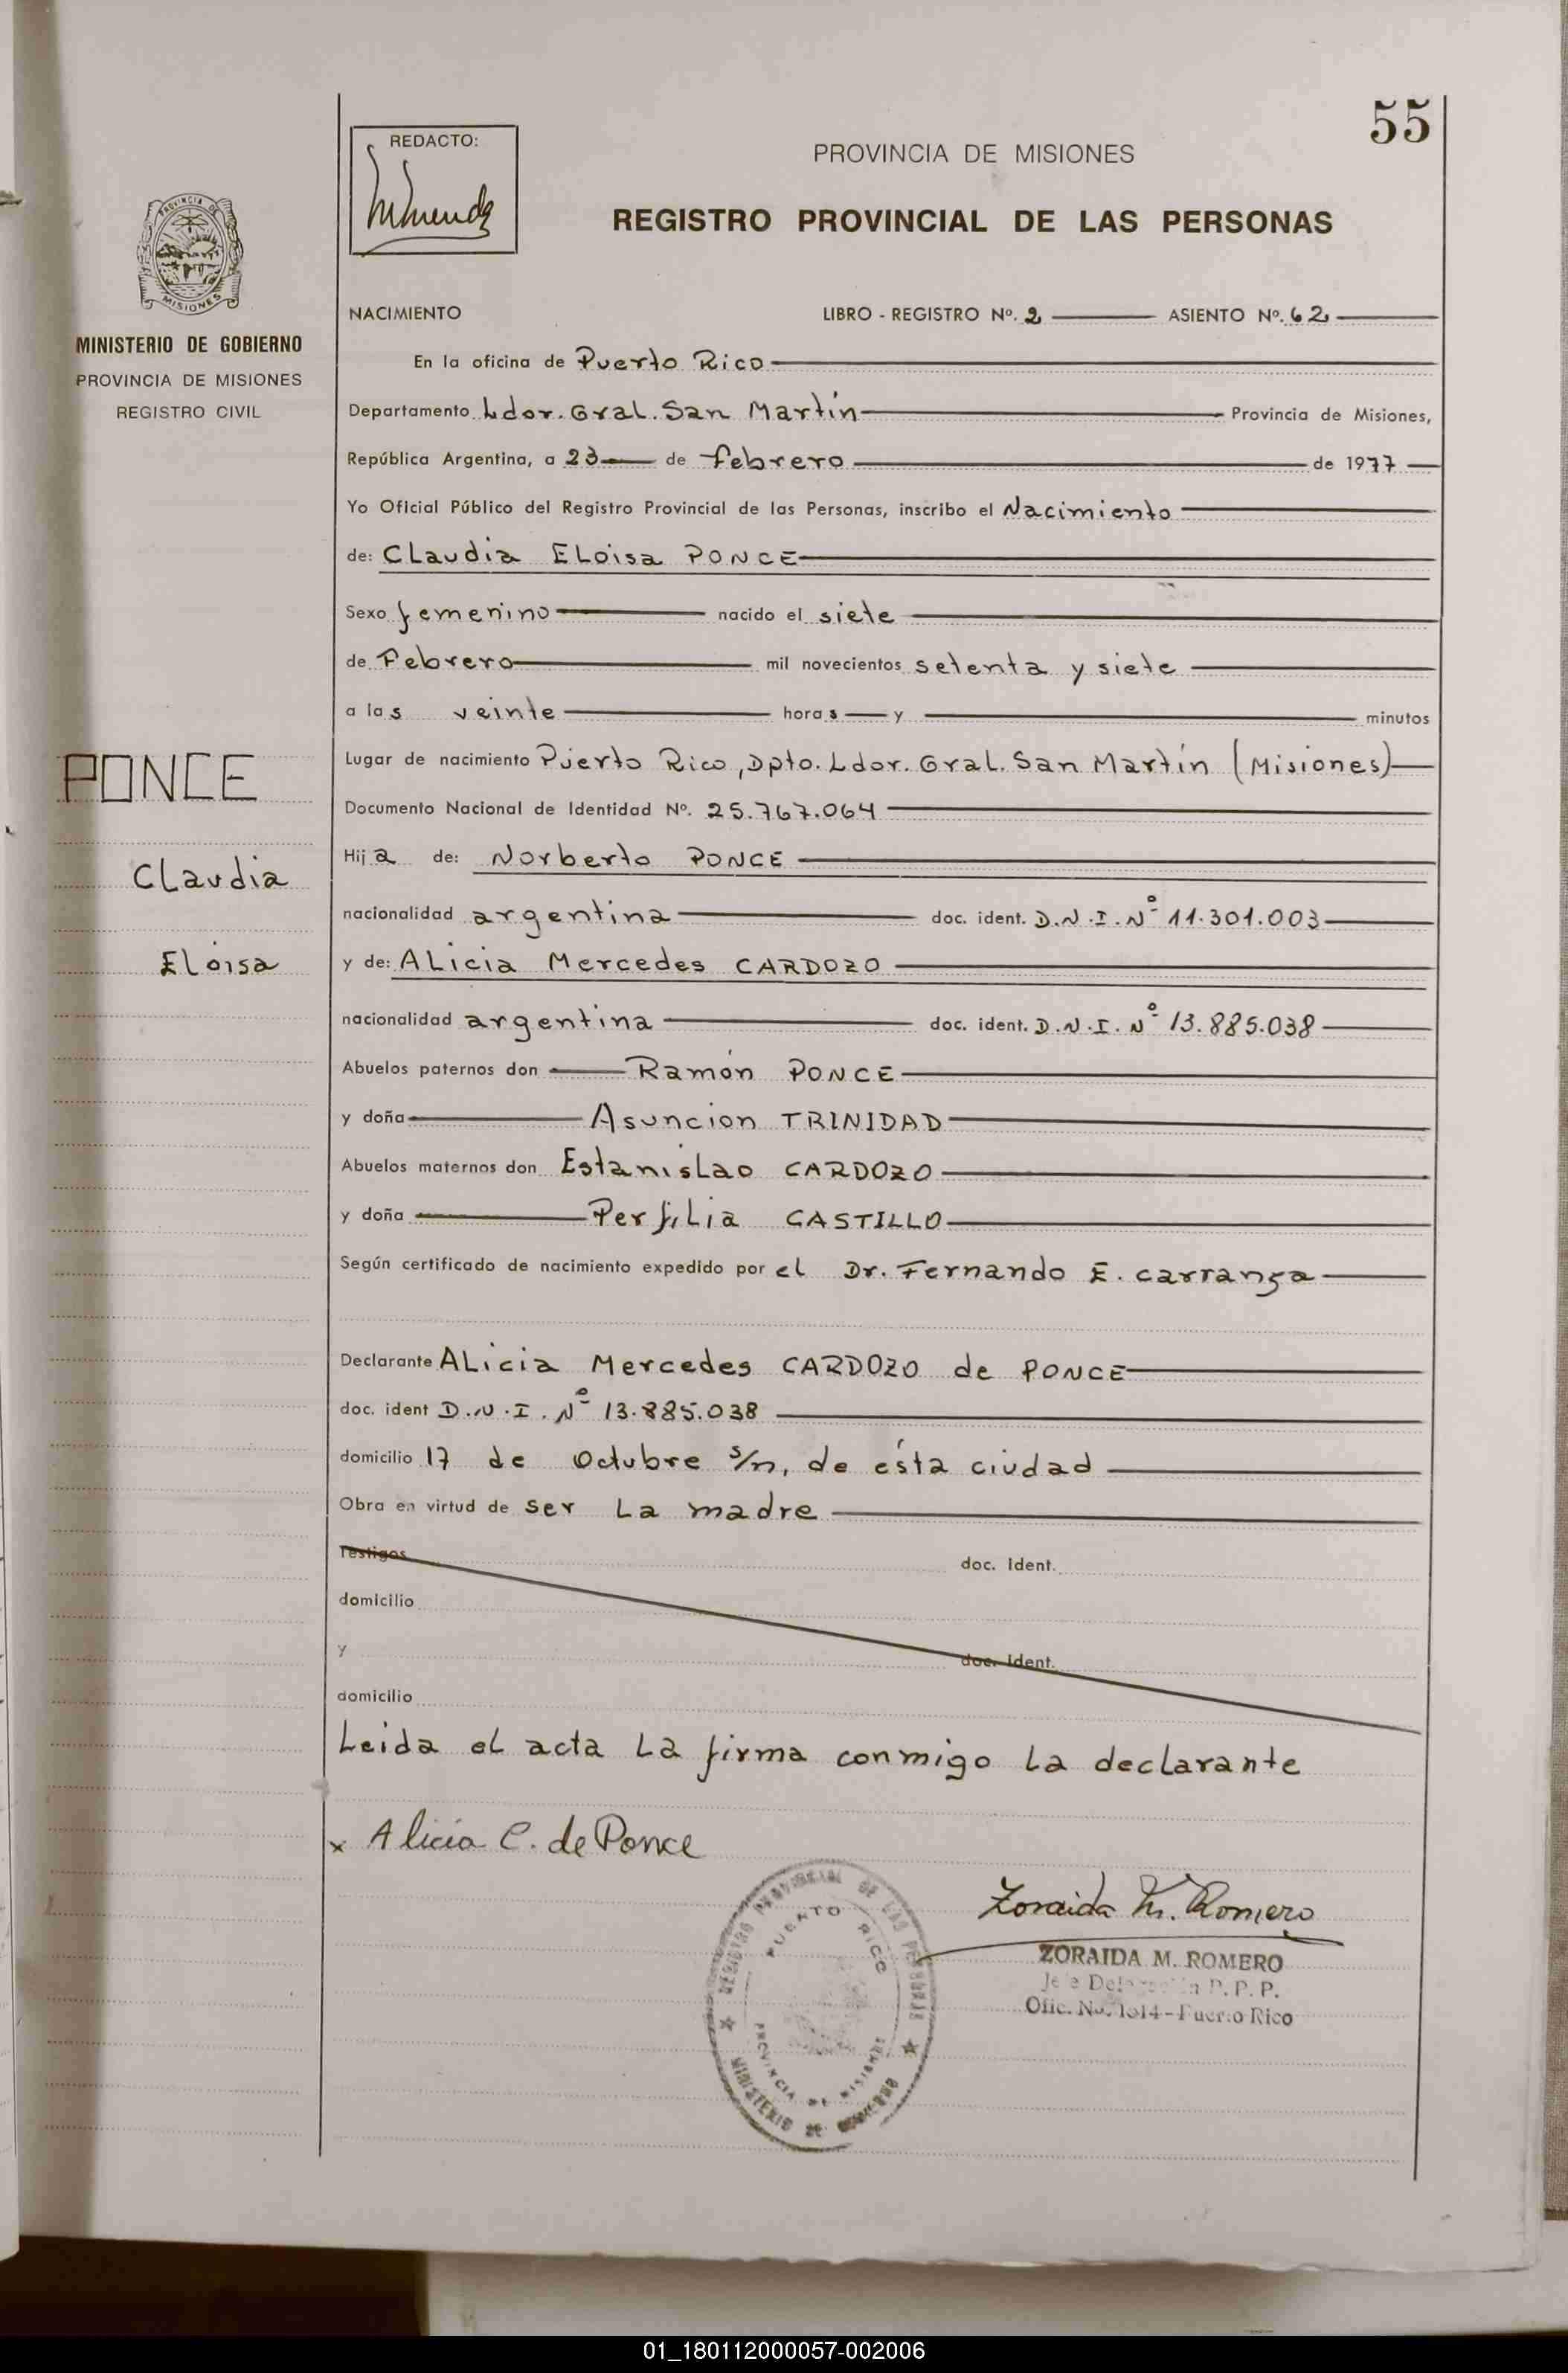 55
REDACTO:
PROVINCIA DE MISIONES
REGISTRO PROVINCIAL DE LAS PERSONAS
PROVINCIA DE
MISIONES
MINISTERIO DE GOBIERNO
PROVINCIA DE MISIONES
REGISTRO CIVIL
NACIMIENTO LIBRO - REGISTRO Nº. 2 ASIENTO Nº. 62
En la oficina de Puerto Rico
Departamento Ldor. Gral. San Martín Provincia de Misiones,
República Argentina, a 23 de febrero de 1977
Yo Oficial Público del Registro Provincial de las Personas, inscribo el Nacimiento
de: Claudia Eloisa PONCE
Sexo femenino nacido el siete
de Febrero mil novecientos setenta y siete
a las veinte horas y minutos
Lugar de nacimiento Puerto Rico, Dpto. Ldor. Gral. San Martín (Misiones)
Documento Nacional de Identidad Nº. 25.767.064
Hija de: Norberto PONCE
nacionalidad argentina doc. ident. D.N.I. Nº 11.301.003
y de: Alicia Mercedes CARDOZO
nacionalidad argentina doc. ident. D.N.I. Nº 13.885.038
Abuelos paternos don Ramón PONCE
y doña Asuncion TRINIDAD
Abuelos maternos don Estanislao CARDOZO
y doña Perfilia CASTILLO
Según certificado de nacimiento expedido por el Dr. Fernando E. Carranza
Declarante Alicia Mercedes CARDOZO de PONCE
doc. ident D.N.I. Nº 13.885.038
domicilio 17 de Octubre s/n, de ésta ciudad
Obra en virtud de ser la madre
Testigos doc. ident.
domicilio
y doc. ident.
domicilio
Leida el acta la firma conmigo la declarante
x Alicia C. de Ponce
Zoraida M. Romero
ZORAIDA M. ROMERO
Ofic. No. 1614 - Puerto Rico
REGISTRO PROVINCIAL DE LAS PERSONAS
PUERTO RICO
PROVINCIA DE MISIONES
MINISTERIO DE GOBIERNO
PONCE
Claudia
Eloisa
01_180112000057-002006